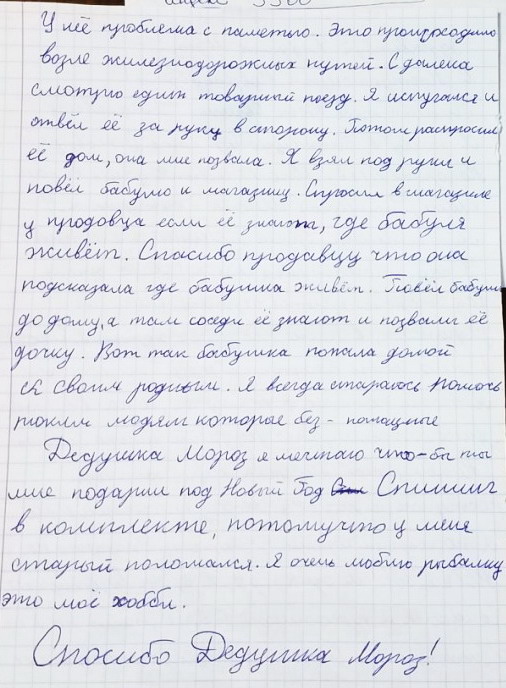 У неё проблема с паметью. Это произходило
возле жилезнодорожных путей. С далека
смотрю едит товарный поезд. Я испугался и
отвёл её за руку в сторону. Потом распросил
её дом, она мне позвала. Я взял под руки и
повёл бабулю к магазину. Спросил в магазине
у продовца если её знают, где бабуля
живёт. Спасибо продавцу что она
подсказала где бабушка живёт. Повёл бабушк
до дому, а там соседи её знают и позвали её
дочку. Вот так бабушка попала домой
к своим родным. Я всегда стараюсь помочь
таким людям которые без-помощные
Дедушка Мороз я мечтаю что-бы ты
мне подарил под Новый Год Спининг
в комплекте, потомучто у меня
старый поломался. Я очень люблю рыбалку
это моё хобби.
Спосибо Дедушка Мороз!